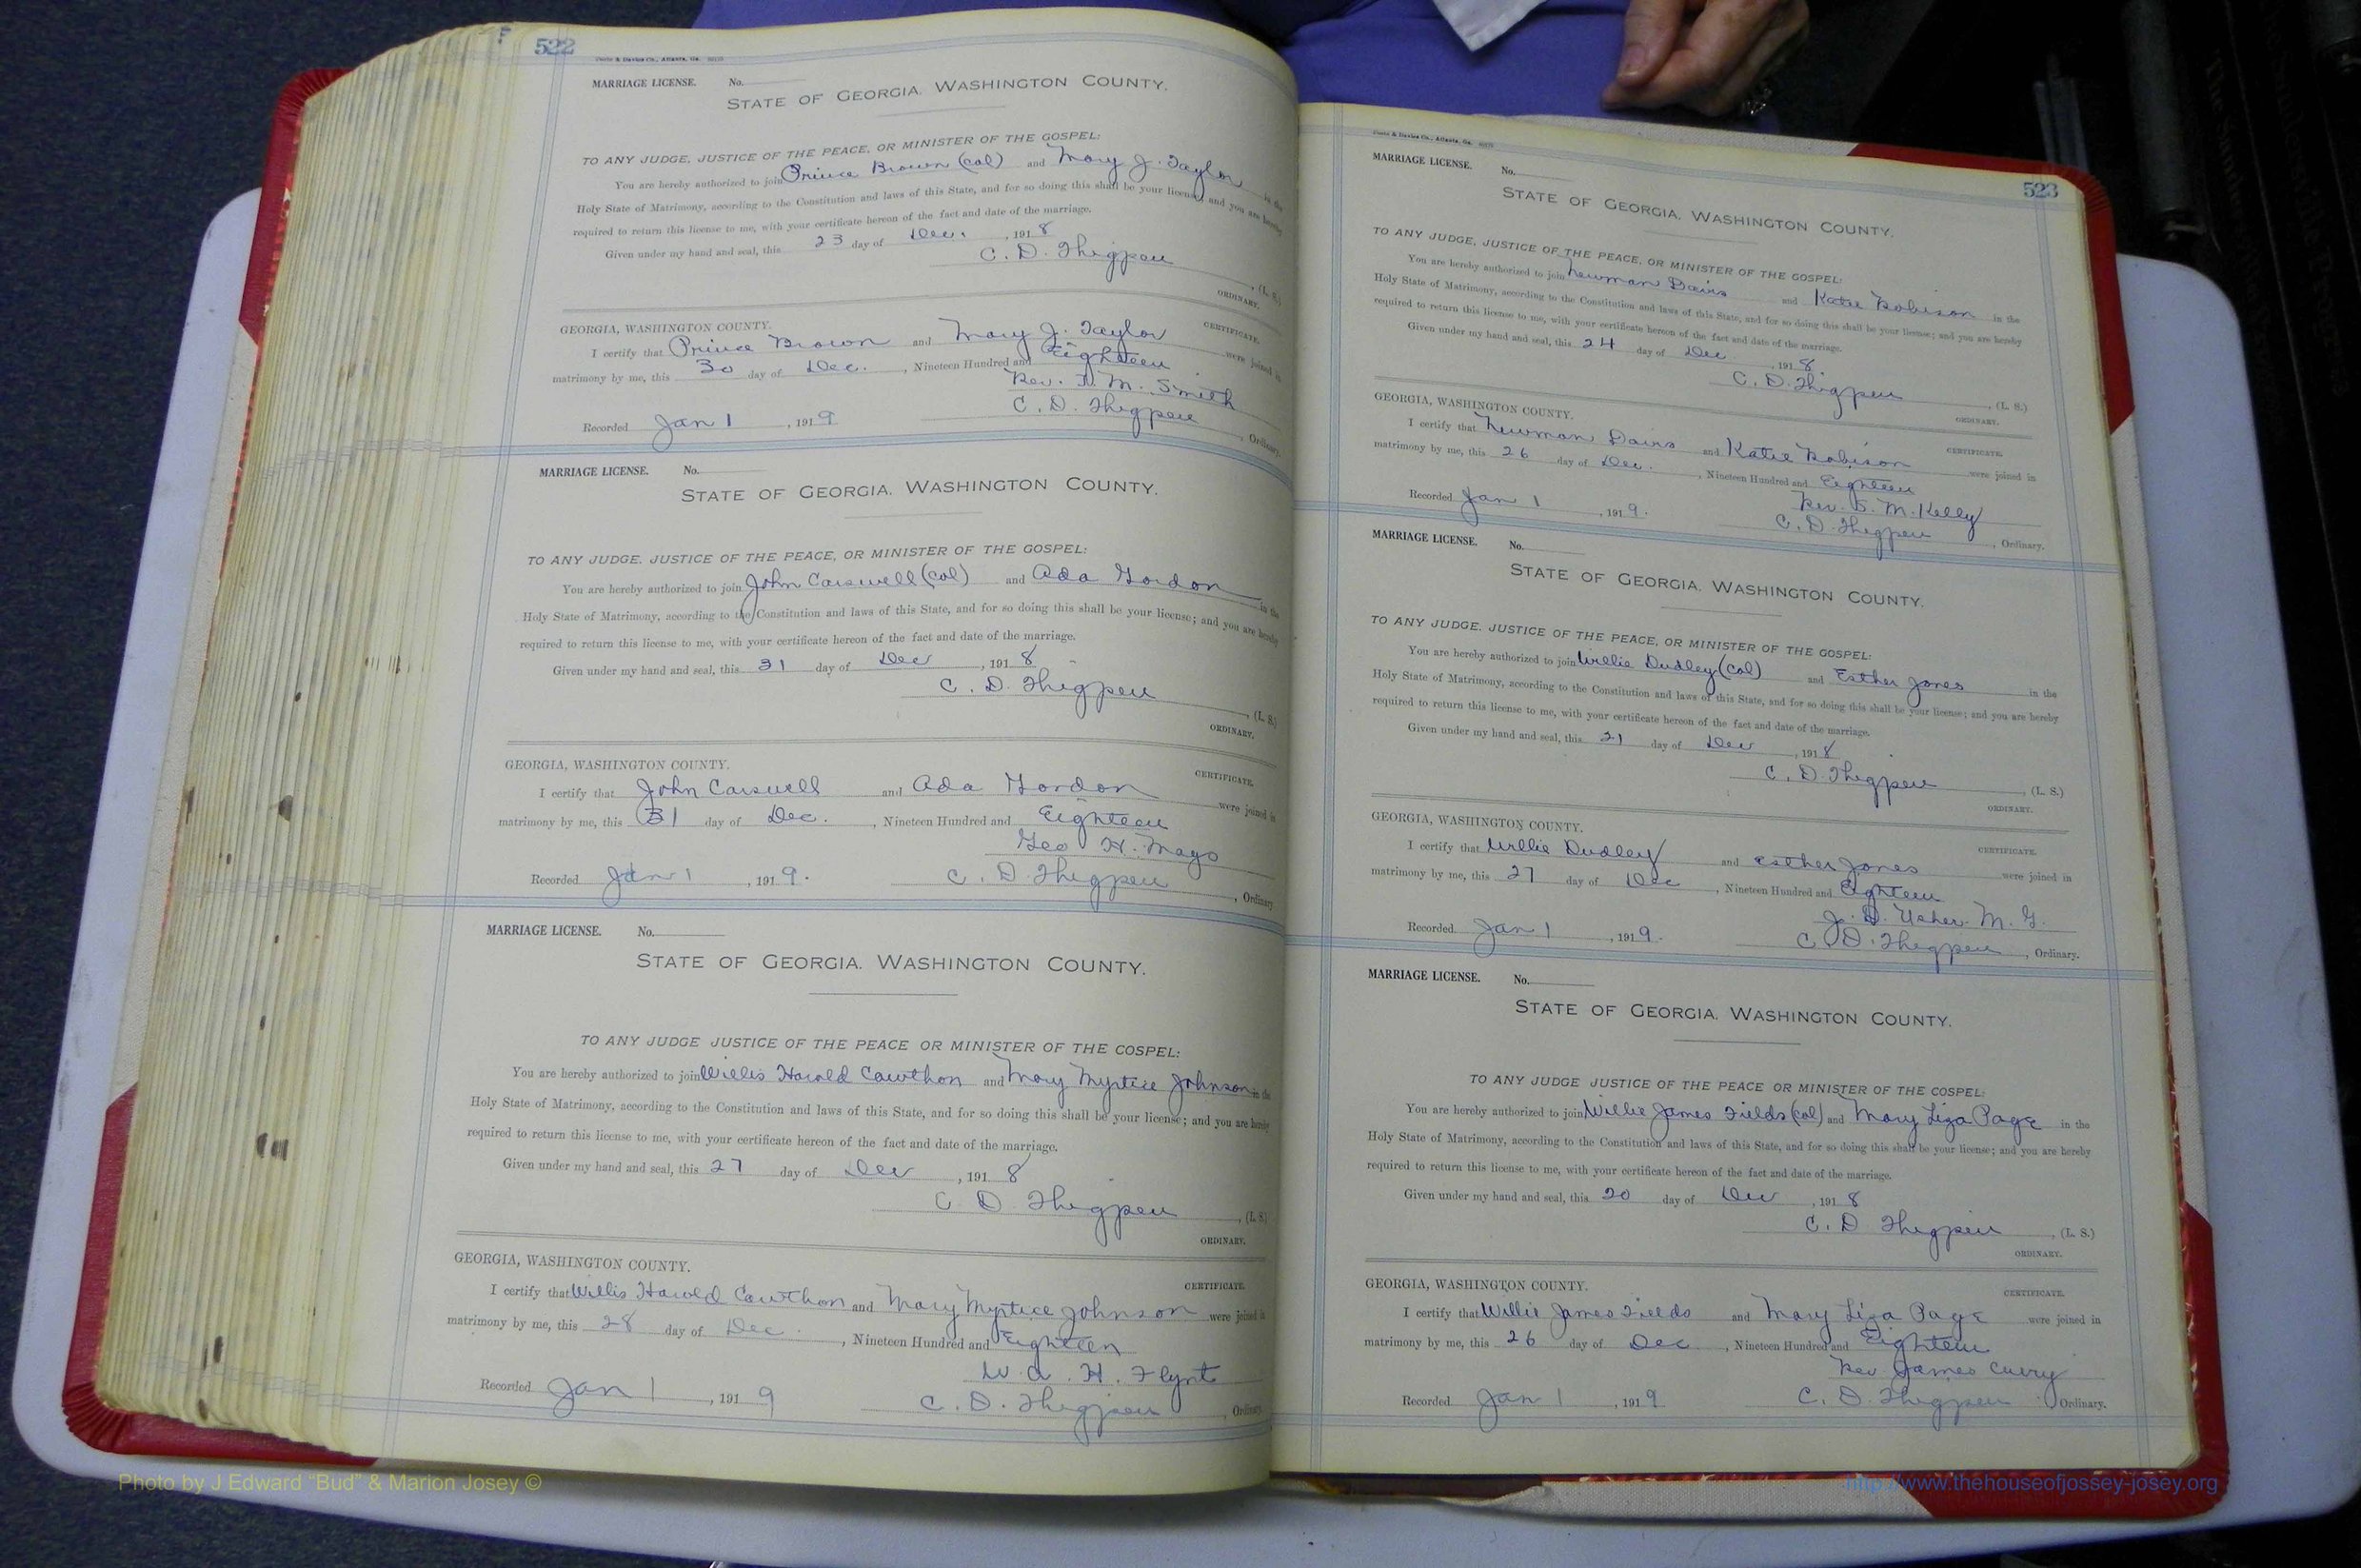 522
MARRIAGE LICENSE. No.
STATE OF GEORGIA, WASHINGTON COUNTY.
TO ANY JUDGE, JUSTICE OF THE PEACE, OR MINISTER OF THE GOSPEL:
You are hereby authorized to join Prince Brown (col) and Mary J. Taylor in the
Holy State of Matrimony, according to the Constitution and laws of this State, and for so doing this shall be your license; and you are hereby
required to return this license to me, with your certificate hereon of the fact and date of the marriage.
Given under my hand and seal, this 23 day of Dec. , 1918
C. D. Thigpen , (L. S.)
ORDINARY.
GEORGIA, WASHINGTON COUNTY. CERTIFICATE.
I certify that Prince Brown and Mary J. Taylor were joined in
matrimony by me, this 30 day of Dec. , Nineteen Hundred and Eighteen
Rev. M. Smith
Recorded Jan 1 , 1919 C. D. Thigpen , Ordinary.
MARRIAGE LICENSE. No.
STATE OF GEORGIA, WASHINGTON COUNTY.
TO ANY JUDGE, JUSTICE OF THE PEACE, OR MINISTER OF THE GOSPEL:
You are hereby authorized to join John Carswell (col) and Ada Gordon in the
Holy State of Matrimony, according to the Constitution and laws of this State, and for so doing this shall be your license; and you are hereby
required to return this license to me, with your certificate hereon of the fact and date of the marriage.
Given under my hand and seal, this 31 day of Dec , 1918
C. D. Thigpen , (L. S.)
ORDINARY.
GEORGIA, WASHINGTON COUNTY. CERTIFICATE.
I certify that John Carswell and Ada Gordon were joined in
matrimony by me, this 31 day of Dec. , Nineteen Hundred and Eighteen
Geo H. Mayo
Recorded Jan 1 , 1919. C. D. Thigpen , Ordinary
MARRIAGE LICENSE. No.
STATE OF GEORGIA, WASHINGTON COUNTY.
TO ANY JUDGE JUSTICE OF THE PEACE OR MINISTER OF THE COSPEL:
You are hereby authorized to join Willis Harold Cawthon and Mary Myrtice Johnson in the
Holy State of Matrimony, according to the Constitution and laws of this State, and for so doing this shall be your license; and you are hereby
required to return this license to me, with your certificate hereon of the fact and date of the marriage.
Given under my hand and seal, this 27 day of Dec , 1918
C. D. Thigpen , (L. S.)
ORDINARY.
GEORGIA, WASHINGTON COUNTY. CERTIFICATE.
I certify that Willis Harold Cawthon and Mary Myrtice Johnson were joined in
matrimony by me, this 28 day of Dec. , Nineteen Hundred and Eighteen
W. A. H. Flynt
Recorded Jan 1 , 1919 C. D. Thigpen , Ordinary.
523
MARRIAGE LICENSE. No.
STATE OF GEORGIA, WASHINGTON COUNTY.
TO ANY JUDGE, JUSTICE OF THE PEACE, OR MINISTER OF THE GOSPEL:
You are hereby authorized to join Newman Davis and Katie Robison in the
Holy State of Matrimony, according to the Constitution and laws of this State, and for so doing this shall be your license; and you are hereby
required to return this license to me, with your certificate hereon of the fact and date of the marriage.
Given under my hand and seal, this 24 day of Dec , 1918.
C. D. Thigpen , (L. S.)
ORDINARY.
GEORGIA, WASHINGTON COUNTY. CERTIFICATE.
I certify that Newman Davis and Katie Robison were joined in
matrimony by me, this 26 day of Dec. , Nineteen Hundred and Eighteen
Rev. M. Kelly
Recorded Jan 1 , 1919. C. D. Thigpen , Ordinary.
MARRIAGE LICENSE. No.
STATE OF GEORGIA, WASHINGTON COUNTY.
TO ANY JUDGE, JUSTICE OF THE PEACE, OR MINISTER OF THE GOSPEL:
You are hereby authorized to join Willie Dudley (col) and Esther Jones in the
Holy State of Matrimony, according to the Constitution and laws of this State, and for so doing this shall be your license; and you are hereby
required to return this license to me, with your certificate hereon of the fact and date of the marriage.
Given under my hand and seal, this 21 day of Dec , 1918
C. D. Thigpen , (L. S.)
ORDINARY.
GEORGIA, WASHINGTON COUNTY. CERTIFICATE.
I certify that Willie Dudley and Esther Jones were joined in
matrimony by me, this 27 day of Dec , Nineteen Hundred and Eighteen
J. D. Usher M. G.
Recorded Jan 1 , 1919. C. D. Thigpen , Ordinary.
MARRIAGE LICENSE. No.
STATE OF GEORGIA, WASHINGTON COUNTY.
TO ANY JUDGE JUSTICE OF THE PEACE OR MINISTER OF THE COSPEL:
You are hereby authorized to join Willie James Fields (col) and Mary Liza Page in the
Holy State of Matrimony, according to the Constitution and laws of this State, and for so doing this shall be your license; and you are hereby
required to return this license to me, with your certificate hereon of the fact and date of the marriage.
Given under my hand and seal, this 20 day of Dec , 1918
C. D. Thigpen , (L. S.)
ORDINARY.
GEORGIA, WASHINGTON COUNTY. CERTIFICATE.
I certify that Willie James Fields and Mary Liza Page were joined in
matrimony by me, this 26 day of Dec , Nineteen Hundred and Eighteen
Rev James Curry
Recorded Jan 1 , 1919. C. D. Thigpen Ordinary.
Photo by J Edward "Bud" & Marion Josey ©
http://www.thehouseofjossey-josey.org